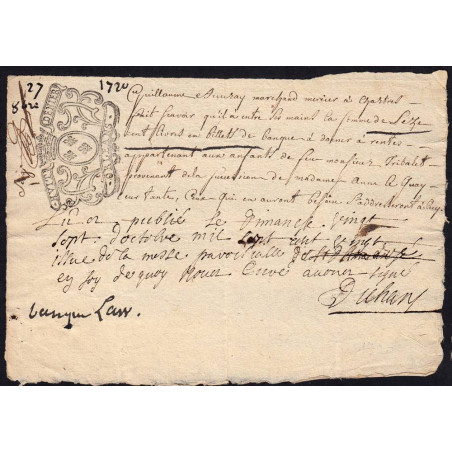 27 1720
8bre
Guillaume marchand mercier a Chartres
fait scavoir qu'il a entre les mains la somme de seize
cent livres en billets de banque a donner a rentes
appartenant aux enfants de feu monsieur Tribalet
provenant de la succession de madame Anne
leur tante, Ceux qui en auront besoin s'addresseront a luy
Lu et publié le dimanche vingt
sept d'octobre mil sept cent vingt
issue de la messe paroissialle de
en foy de quoy nous Curé avons signé
banque Law.